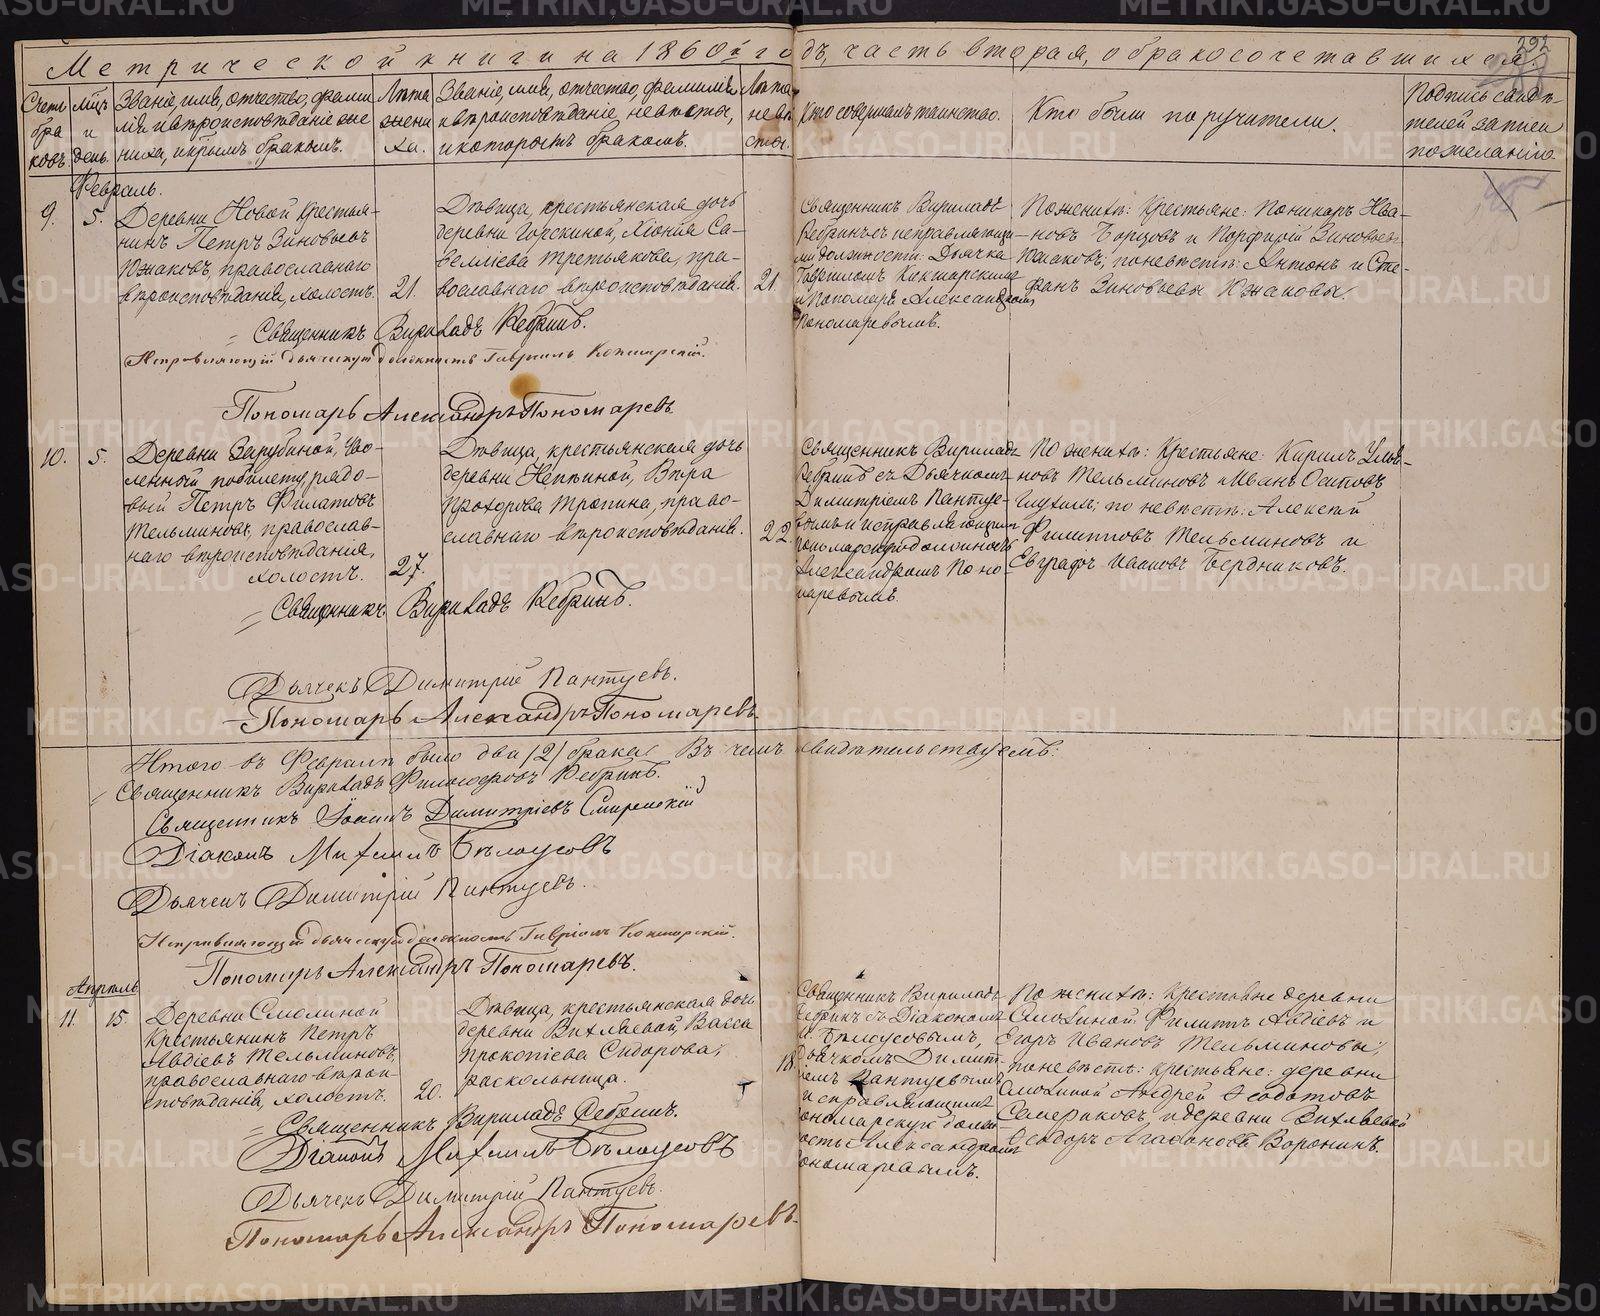 Метрической книги на 1860й годъ, часть вторая, о бракосочетавшихся.
292
Счетъ браковъ.
Мѣсяцъ и день.
Званіе, имя, отчество, фамилія и вѣроисповѣданіе жениха, и крымъ бракомъ.
Лѣта жениха.
Званіе, имя, отчество, фамилія и вѣроисповѣданіе невѣсты, и которымъ бракомъ.
Лѣта невѣсты.
Кто совершалъ таинство.
Кто были поручители.
Подпись свидѣтелей записи по желанію
Февраль.
9.
5.
Деревни Новой крестья-
нинъ Петръ Зиновьевъ
Южаковъ, православнаго
вѣроисповѣданія, холостъ.
21.
Дѣвица, крестьянская дочь
деревни Горскиной, Хіонія Са-
велліева Третьякова, пра-
вославнаго вѣроисповѣданія.
21.
Священникъ Вириладъ
Ребринъ съ исправляющи-
ми должности: Дьячка
Гавріиломъ Кокшарскимъ
и Пономаря Александромъ
Пономаревымъ.
По женихѣ: Крестьяне: Поникаръ Ива-
новъ Борцовъ и Порфирій Зиновьевъ
Южаковъ; по невѣстѣ: Антонъ и Сте-
фанъ Зиновьевы Южаковы.
Священникъ Вириладъ Ребринъ.
Исправляющій дьяческую должность Гавріилъ Кокшарскій.
Пономарь Александръ Пономаревъ.
10.
5.
Деревни Зарубиной, Уво-
ленный по билету, рядо-
вый Петръ Филатовъ
Тельминовъ, православ-
наго вѣроисповѣданія,
холостъ.
27.
Дѣвица, крестьянская дочь
деревни Неппиной, Вѣра
Прохорова Тропина, право-
славнаго вѣроисповѣданія.
22.
Священникъ Вириладъ
Ребринъ съ Дьячкомъ
Димитріемъ Пантуе-
вымъ и исправляющимъ
пономарскую должность
Александромъ Поно-
маревымъ.
По женихѣ: Крестьяне: Кирилъ Улья-
новъ Тельминовъ и Иванъ Осиповъ
Глухихъ; по невѣстѣ: Алексѣй
Филипповъ Тельминовъ и
Евграфъ Бердниковъ.
Священникъ Вириладъ Ребринъ.
Дьячекъ Димитрій Пантуевъ.
Пономарь Александръ Пономаревъ
Итого въ Февралѣ было два /2/ брака. Въ чемъ свидѣтельствуемъ:
Священникъ Вириладъ Философовъ Ребринъ.
Священникъ Іоаннъ Димитріевъ Смиренскій
Діаконъ Михаилъ Бѣлоусовъ
Дьячекъ Димитрій Пантуевъ.
Исправляющій дьяческую должность Гавріилъ Кокшарскій.
Пономарь Александръ Пономаревъ.
Апрѣль
11.
15.
Деревни Смолиной
Крестьянинъ Петръ
Авдіевъ Тельминовъ,
православнаго вѣрои-
сповѣданія, холостъ.
20.
Дѣвица, крестьянская дочь
деревни Вихляевой, Васса
Прокопіева Сидорова,
раскольница.
18.
Священникъ Вириладъ
Ребринъ съ Діакономъ
М. Бѣлоусовымъ,
Дьячкомъ Димит-
ріемъ Пантуевымъ
и справляющимъ
пономарскую долж-
ность Александромъ
Пономаревымъ.
По женихѣ: Крестьяне деревни
Смолиной: Филиппъ Авдіевъ и
Егоръ Ивановъ Тельминовы;
по невѣстѣ: крестьяне: деревни
Смолиной Андрей Ѳеодотовъ
Самериковъ, и деревни Вихляевой
Ѳеодоръ Агафоновъ Воронинъ.
Священникъ Вириладъ Ребринъ.
Діаконъ Михаилъ Бѣлоусовъ
Дьячекъ Димитрій Пантуевъ.
Пономарь Александръ Пономаревъ.
METRIKI.GASO-URAL.RU